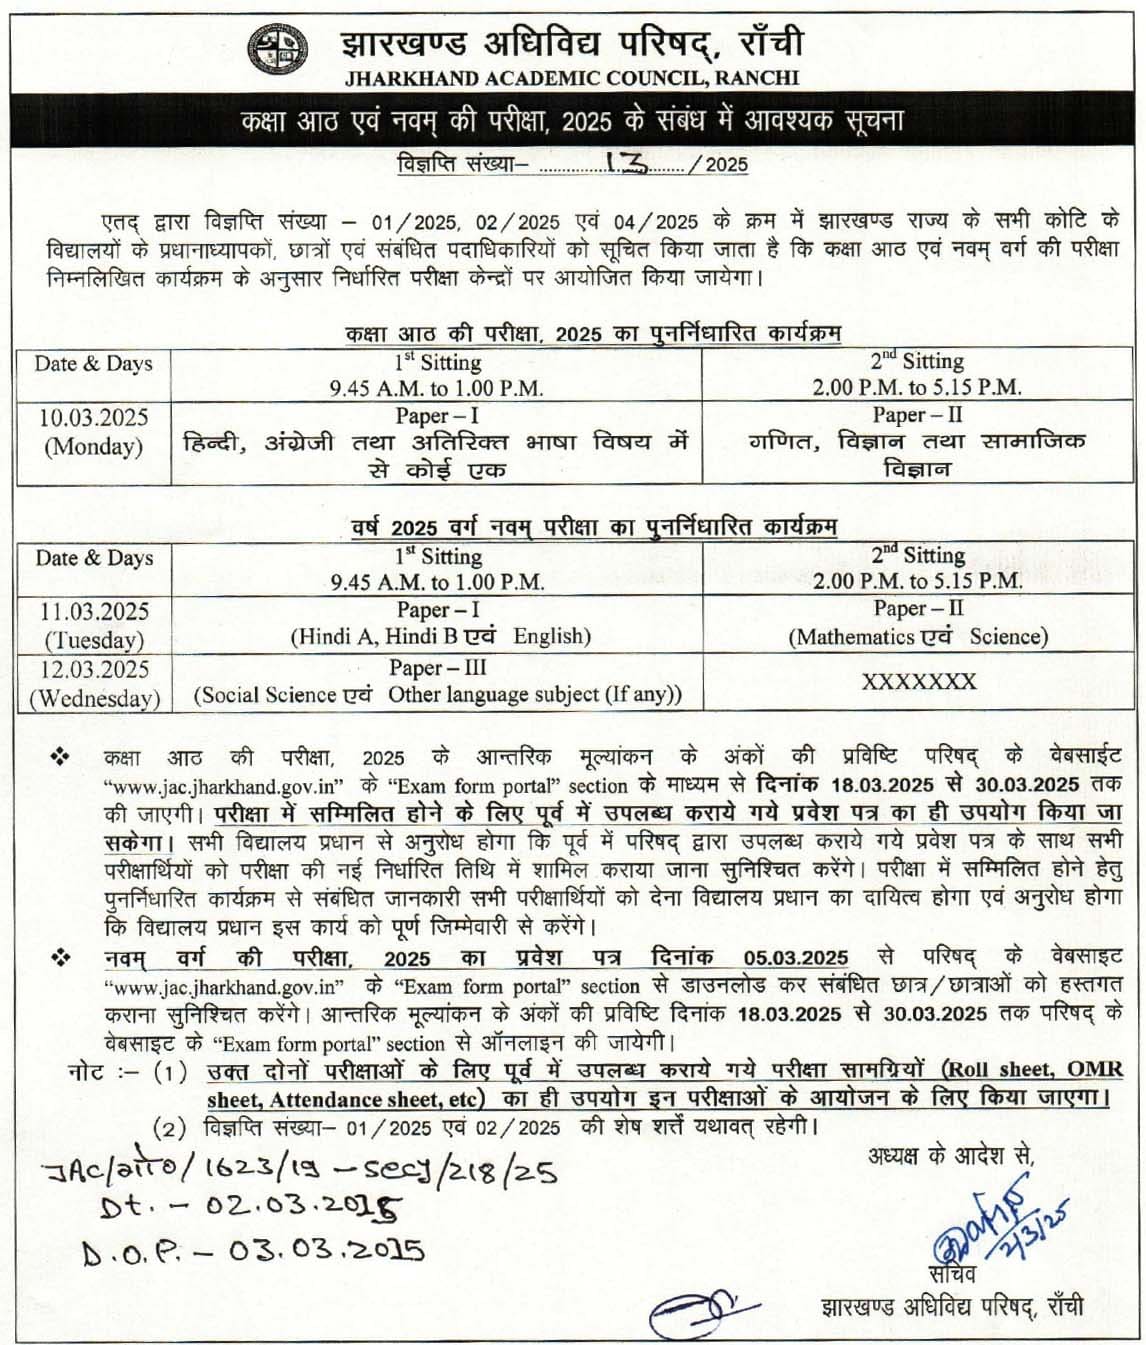 झारखण्ड अधिविद्य परिषद्, राँची
JHARKHAND ACADEMIC COUNCIL, RANCHI
कक्षा आठ एवं नवम् की परीक्षा, 2025 के संबंध में आवश्यक सूचना
विज्ञप्ति संख्या– ................13......../2025
एतद् द्वारा विज्ञप्ति संख्या – 01/2025, 02/2025 एवं 04/2025 के क्रम में झारखण्ड राज्य के सभी कोटि के
विद्यालयों के प्रधानाध्यापकों, छात्रों एवं संबंधित पदाधिकारियों को सूचित किया जाता है कि कक्षा आठ एवं नवम् वर्ग की परीक्षा
निम्नलिखित कार्यक्रम के अनुसार निर्धारित परीक्षा केन्द्रों पर आयोजित किया जायेगा।
कक्षा आठ की परीक्षा, 2025 का पुनर्निधारित कार्यक्रम
Date & Days 1st Sitting 2nd Sitting
9.45 A.M. to 1.00 P.M. 2.00 P.M. to 5.15 P.M.
10.03.2025 Paper – I Paper – II
(Monday) हिन्दी, अंग्रेजी तथा अतिरिक्त भाषा विषय में गणित, विज्ञान तथा सामाजिक
से कोई एक विज्ञान
वर्ष 2025 वर्ग नवम् परीक्षा का पुनर्निधारित कार्यक्रम
Date & Days 1st Sitting 2nd Sitting
9.45 A.M. to 1.00 P.M. 2.00 P.M. to 5.15 P.M.
11.03.2025 Paper – I Paper – II
(Tuesday) (Hindi A, Hindi B एवं English) (Mathematics एवं Science)
12.03.2025 Paper – III XXXXXXX
(Wednesday) (Social Science एवं Other language subject (If any))
❖ कक्षा आठ की परीक्षा, 2025 के आन्तरिक मूल्यांकन के अंकों की प्रविष्टि परिषद् के वेबसाईट
“www.jac.jharkhand.gov.in” के “Exam form portal” section के माध्यम से दिनांक 18.03.2025 से 30.03.2025 तक
की जाएगी। परीक्षा में सम्मिलित होने के लिए पूर्व में उपलब्ध कराये गये प्रवेश पत्र का ही उपयोग किया जा
सकेगा। सभी विद्यालय प्रधान से अनुरोध होगा कि पूर्व में परिषद् द्वारा उपलब्ध कराये गये प्रवेश पत्र के साथ सभी
परीक्षार्थियों को परीक्षा की नई निर्धारित तिथि में शामिल कराया जाना सुनिश्चित करेंगे। परीक्षा में सम्मिलित होने हेतु
पुनर्निधारित कार्यक्रम से संबंधित जानकारी सभी परीक्षार्थियों को देना विद्यालय प्रधान का दायित्व होगा एवं अनुरोध होगा
कि विद्यालय प्रधान इस कार्य को पूर्ण जिम्मेवारी से करेंगे।
❖ नवम् वर्ग की परीक्षा, 2025 का प्रवेश पत्र दिनांक 05.03.2025 से परिषद् के वेबसाइट
“www.jac.jharkhand.gov.in” के “Exam form portal” section से डाउनलोड कर संबंधित छात्र/छात्राओं को हस्तगत
कराना सुनिश्चित करेंगे। आन्तरिक मूल्यांकन के अंकों की प्रविष्टि दिनांक 18.03.2025 से 30.03.2025 तक परिषद् के
वेबसाइट के “Exam form portal” section से ऑनलाइन की जायेगी।
नोट :– (1) उक्त दोनों परीक्षाओं के लिए पूर्व में उपलब्ध कराये गये परीक्षा सामग्रियों (Roll sheet, OMR
sheet, Attendance sheet, etc) का ही उपयोग इन परीक्षाओं के आयोजन के लिए किया जाएगा।
(2) विज्ञप्ति संख्या– 01/2025 एवं 02/2025 की शेष शर्त्तें यथावत् रहेगी।
JAC/गो0/1623/19 – secy/218/25
Dt. – 02.03.2025
D.O.P. – 03.03.2025
अध्यक्ष के आदेश से,
2/3/25
सचिव
झारखण्ड अधिविद्य परिषद्, राँची